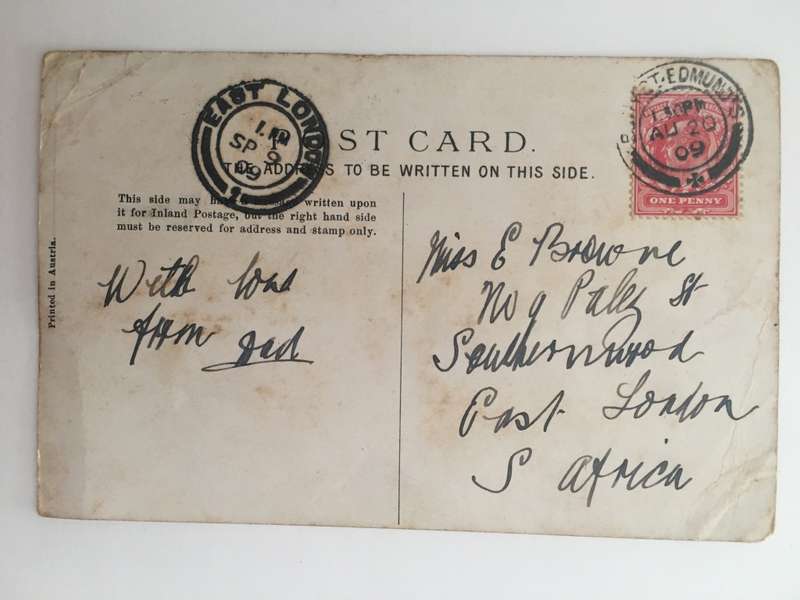 EAST LONDON
1. PM
SP 9
09
BURY ST. EDMUNDS
1.30PM
AU 20
09
ONE PENNY
POST CARD.
THE ADDRESS TO BE WRITTEN ON THIS SIDE.
This side may written upon
it for Inland Postage, but the right hand side
must be reserved for address and stamp only.
Printed in Austria.
With love
from Dad
Miss E Browne
No 9 St
Southernwood
East London
S Africa